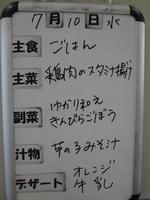 7月10日水
主食 ごはん
主菜 鶏肉のスタミナ揚げ
副菜 ゆかり和え
きんぴらごぼう
汁物 芋のみそ汁
デザート オレンジ
牛乳